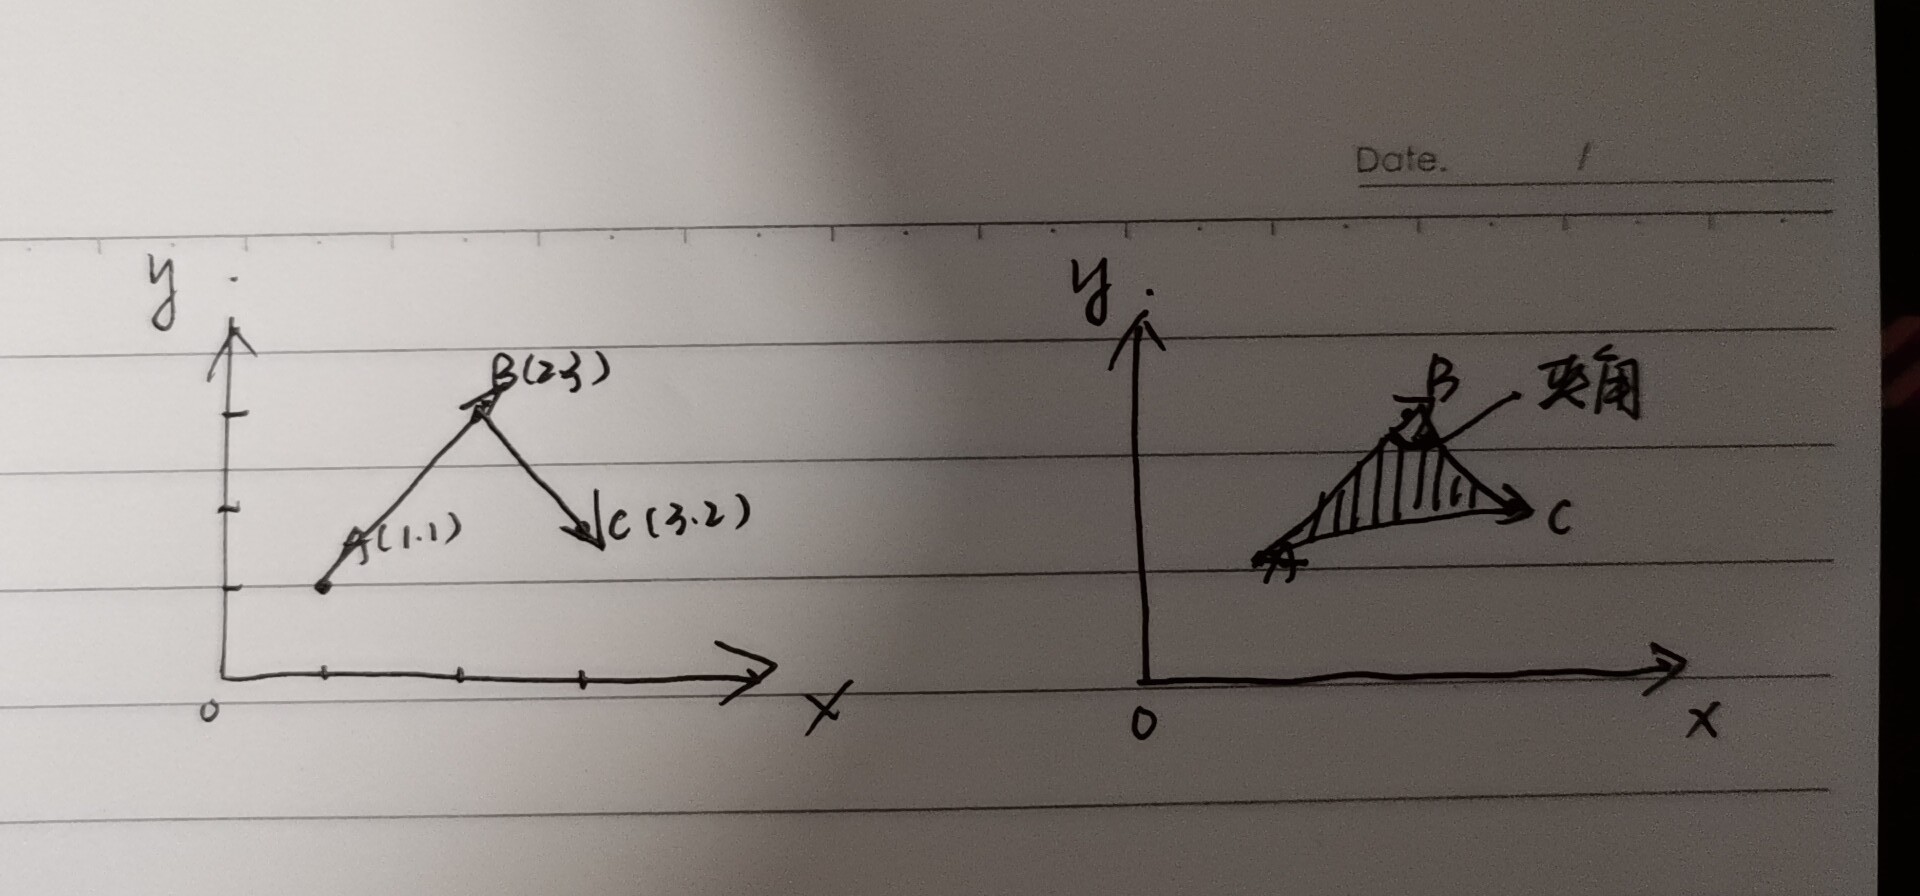 Date. /
y
B(2.3)
A(1.1)
C(3.2)
0
X
y
B
夹角
C
A
0
X